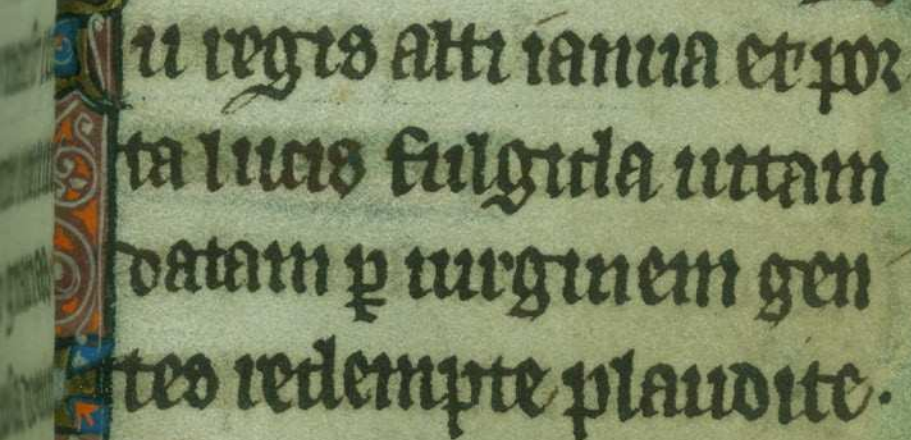 u regis alti ianua et por
ta lucis fulgida uitam
datam ꝑ uirginem gen
tes redempte plaudite.